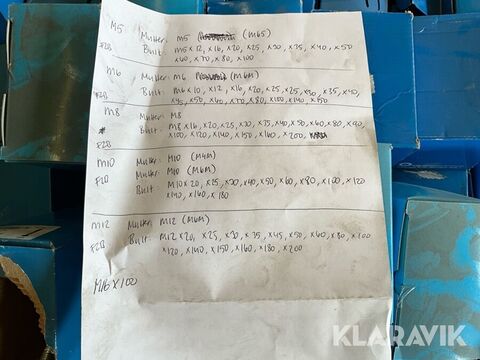 M5 Mutter: M5 (M6S)
FZB Bult: M5 x 12, x 16, x 20, x 25, x 30, x 35, x 40, x 50
x 60, x 70, x 80, x 100
M6 Mutter: M6 (M6M)
FZB Bult: M6 x 10, x 12, x 16, x 20, x 25, x 30, x 35, x 40,
x 45, x 50, x 60, x 70, x 80, x 100, x 140, x 150
M8 Mutter: M8
# Bult: M8 x 16, x 20, x 25, x 30, x 35, x 40, x 50, x 60, x 80, x 90,
FZB x 100, x 120, x 140, x 150, x 160, x 200,
M10 Mutter: M10 (M4M)
FZB Mutter: M10 (M6M)
Bult: M10 x 20, x 25, x 30, x 40, x 50, x 60, x 80, x 100, x 120
x 140, x 160, x 180
M12 Mutter: M12 (M6M)
FZB Bult: M12 x 20, x 25, x 30, x 35, x 45, x 50, x 60, x 80, x 100
x 120, x 140, x 150, x 160, x 180, x 200
M16 x 100
KLARAVIK